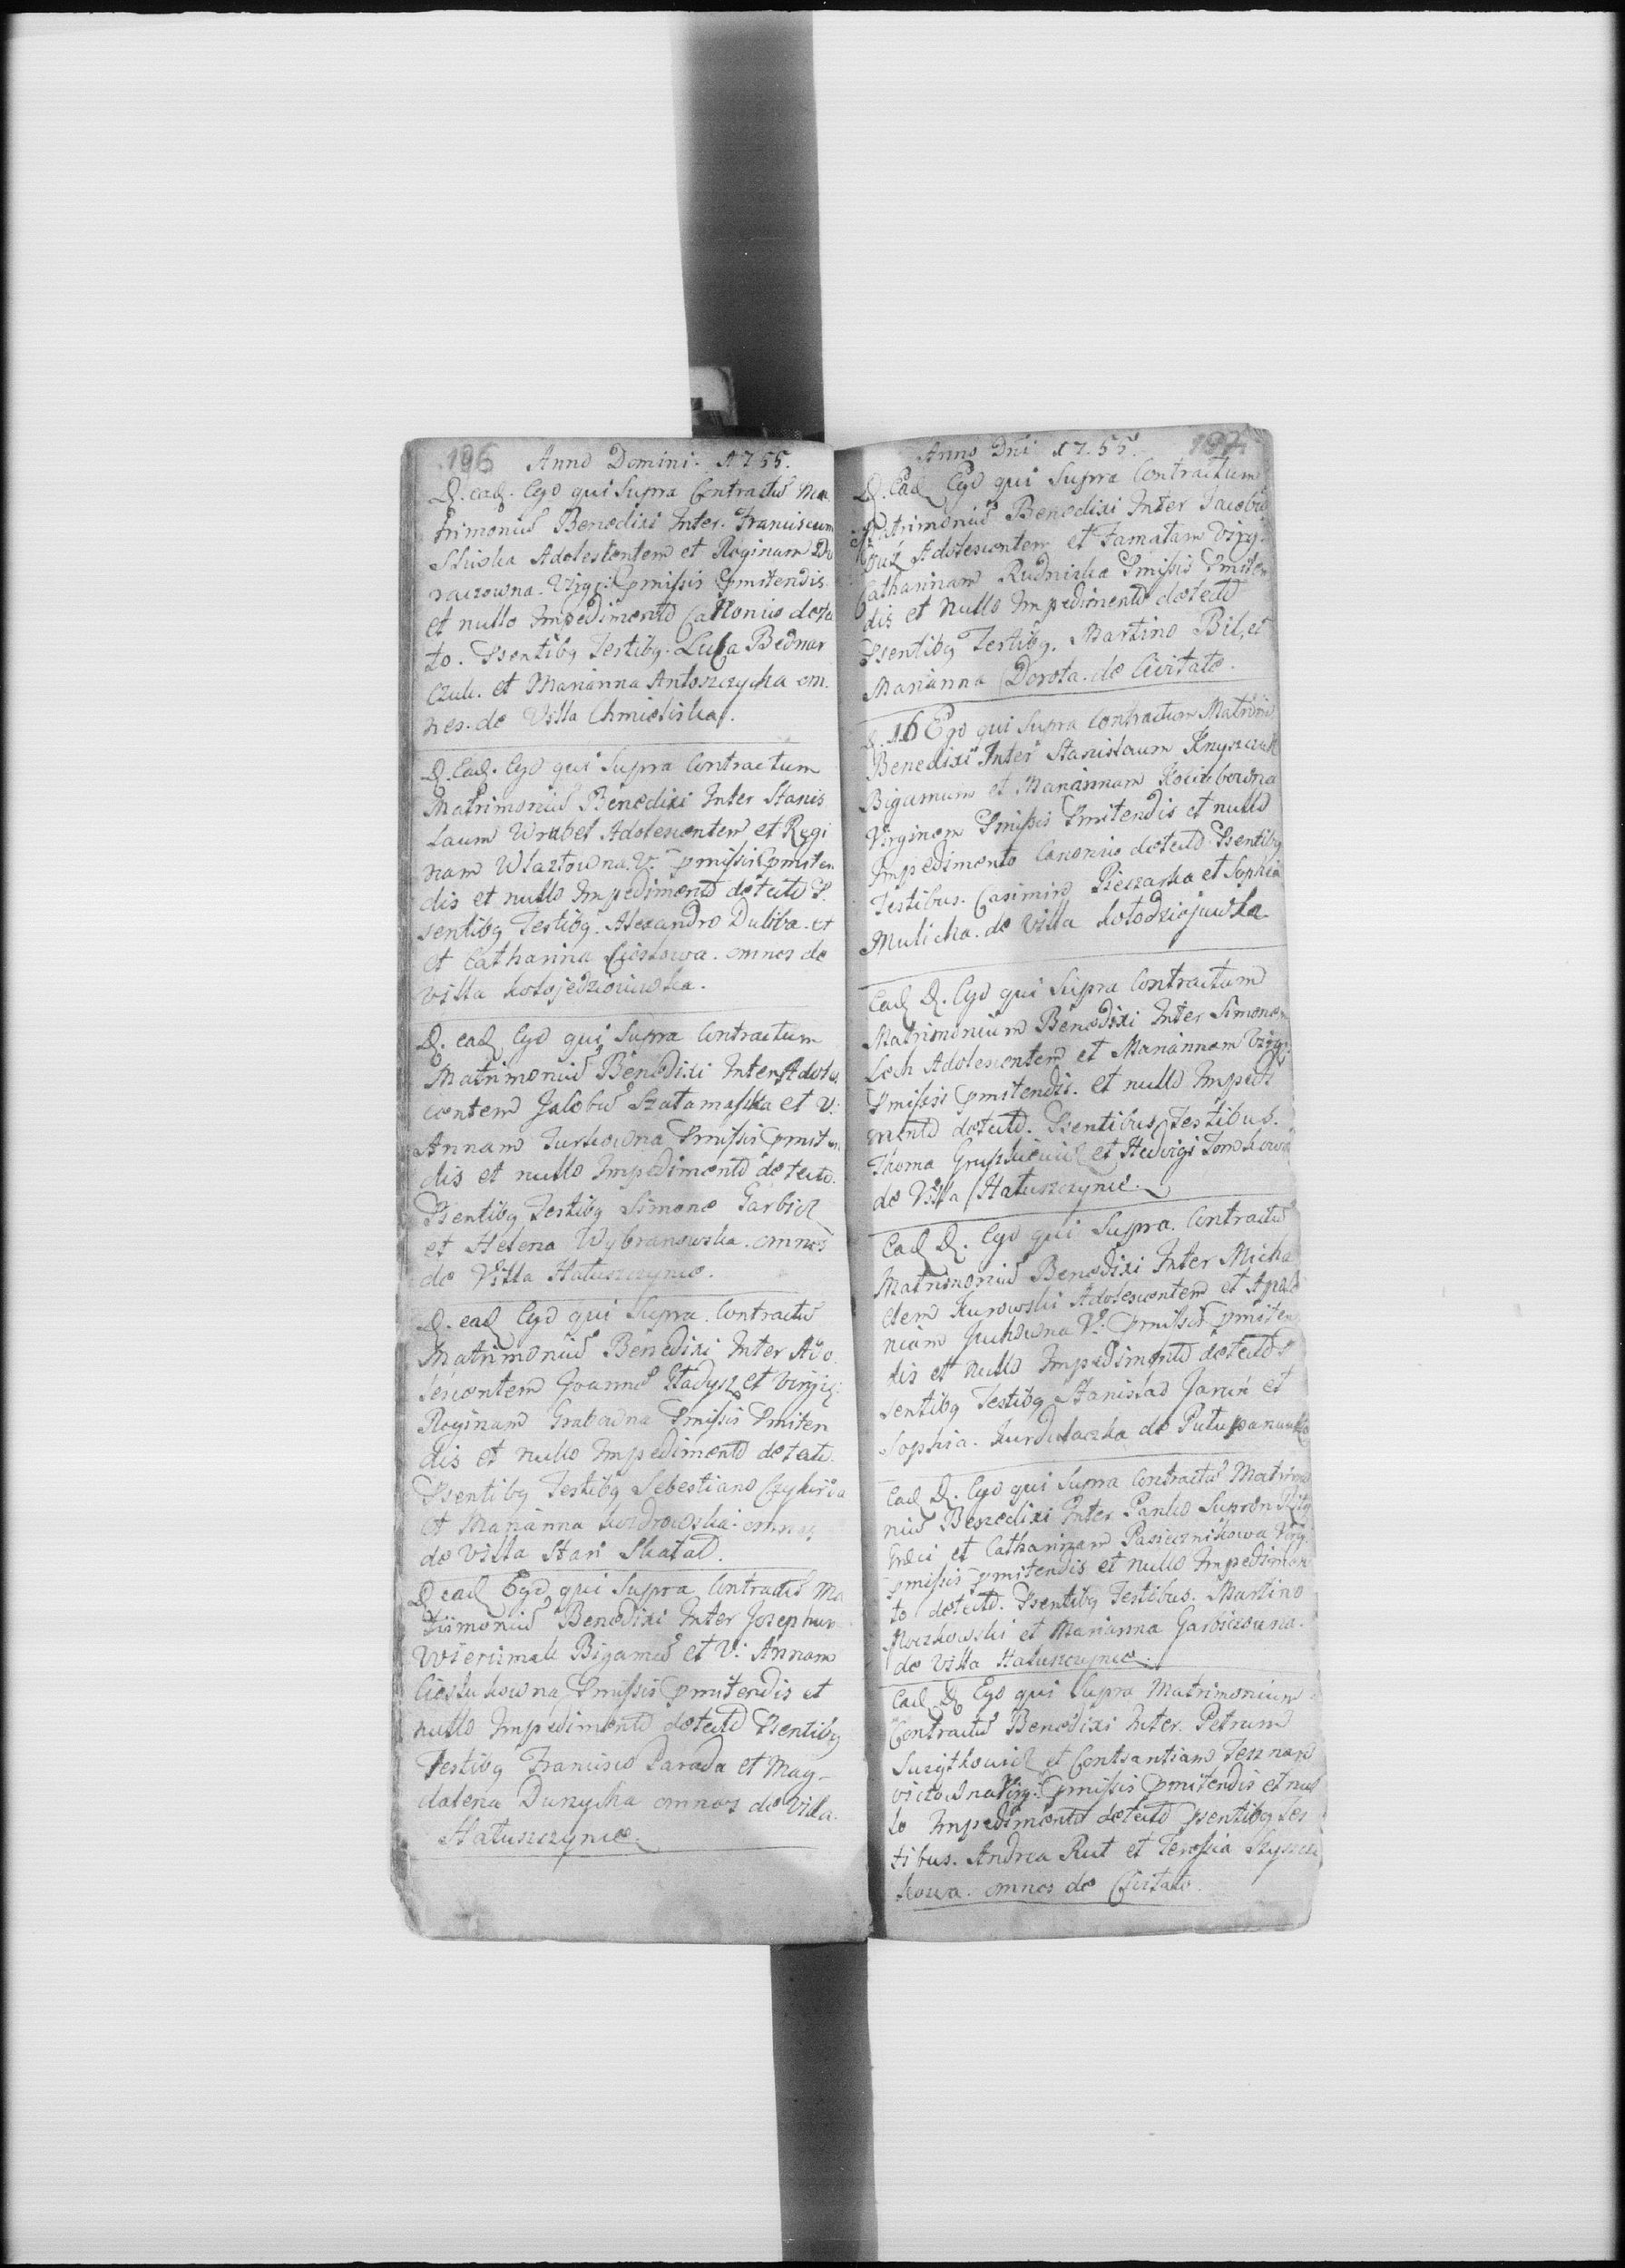 196 Anno Domini. 1755.
D. ead. Ego qui Supra Contractũ Ma
trimoniũ Benedixi Inter. Franciscum
Sliska Adolescentem et Reginam Do
raczowna. Virgi: Pmissis Pmitendis.
et nullo Impedimento Canonico detec
to. Psentibq Testibq. Luca Bednar
czuk. et Marianna Antoszczycha om.
nes. de Villa Chmieliska.
D. Ead. Ego qui Supra Contractum
Matrimoniũ Benedixi Inter Stanis
laum Wrubel Adolescentem et Regi
nam Wlaztowna. V. pmissis Pmiten
dis et nullo Impedimento detecto P.
sentibq Testibq. Alexandro Duliba. et
et Catharina Ciesłowa. omnes de
Villa
D. ead Ego qui Supra Contractum
Matrimoniũ Benedixi Inter Adoles
centem Jacobũ Szatamaszka et V.
Annam Jurkowna Pmissis Pmiten
dis et nullo Impedimento detecto.
Psentibq Testibq Simone Garbicz
et Helena Wybranowska. omnes
de Villa Hałuszczynce.
D. ead Ego qui Supra. Contractũ
Matrimoniũ Benedixi Inter Ado
lescentem Joannẽ Stadysz et Virgi:
Reginam Grabowna Pmissis Pmiten
dis et nullo Impedimento detecto.
Psentibq Testibq Sebestiano Czykirda
et Marianna omnes
de Villa Stari Skaład.
D ead Ego qui Supra Contractũ Ma
trimoniũ Benedixi Inter Josephum
Wierzimak Bigamũ et V: Annam
Ciesłukowna Pmissis Pmitendis et
nullo Impedimento detecto Psentibq
Testibq Francisco Parada et Mag-
dalena Durzycha omnes de Villa.
Hałuszczynce.
Anno Dni 17.55. 197
D. Ead Ego qui Supra Contractum
Matrimoniũ Benedixi Inter Jacobũ
Buz Adolescentem et Famatam Virg:
Catharinam Rudnicka Pmissis Pmiten
dis et Nullo Impedimento detecto
Psentibq Testibq. Martino Bil, et
Marianna Dorota. de Civitate.
D. 16 Ego qui Supra Contractum Matrimo
Benedixi Inter Stanislaum Knyszczuk
Bigamum et Mariannam
Virginem Pmissis Pmitendis et nullo
Impedimento Canonico detecto Psentibq
Testibus. Casimiro Pieczarka et Sophia
Mulicka. de Villa Kołodziejuwka
Ead D. Ego qui Supra Contractum
Matrimonium Benedixi Inter Simonem
Lech Adolescentem et Mariannam Virgi:
Pmissis pmitendis. et nullo Impedi
mento detecto. Psentibus Testibus.
Thoma et Hedvigi Tomkowa
de Villa Hałuszczynce.
Ead D. Ego qui Supra. Contractũ
Matrimoniũ Benedixi Inter Micha
elem Kurowski Adolescentem et Apolo
niam Jackowna V. Pmissis Pmiten
dis et Nullo Impedimento detecto P
sentibq Testibq Stanislao Janin et
Sophia. de
Ead D. Ego qui Supra Contractũ Matrimo
niũ Benedixi Inter Panko Supron Ritq
Græci et Catharinam Pasiecznikowa Virg:
pmissis pmitendis et nullo Impedimen
to detecto. Psentibq Testibus. Martino
Moczkowski et Marianna Garbiczowna.
de Villa Hałuszczynce.
Ead D Ego qui Supra Matrimonium
Contractũ Benedixi Inter. Petrum
et Constantiam
Virg: Pmissis Pmitendis et nul
lo Impedimento detecto psentibq Tes
tibus. Andrea Rut et Teressia
kowa. omnes de Civitate.